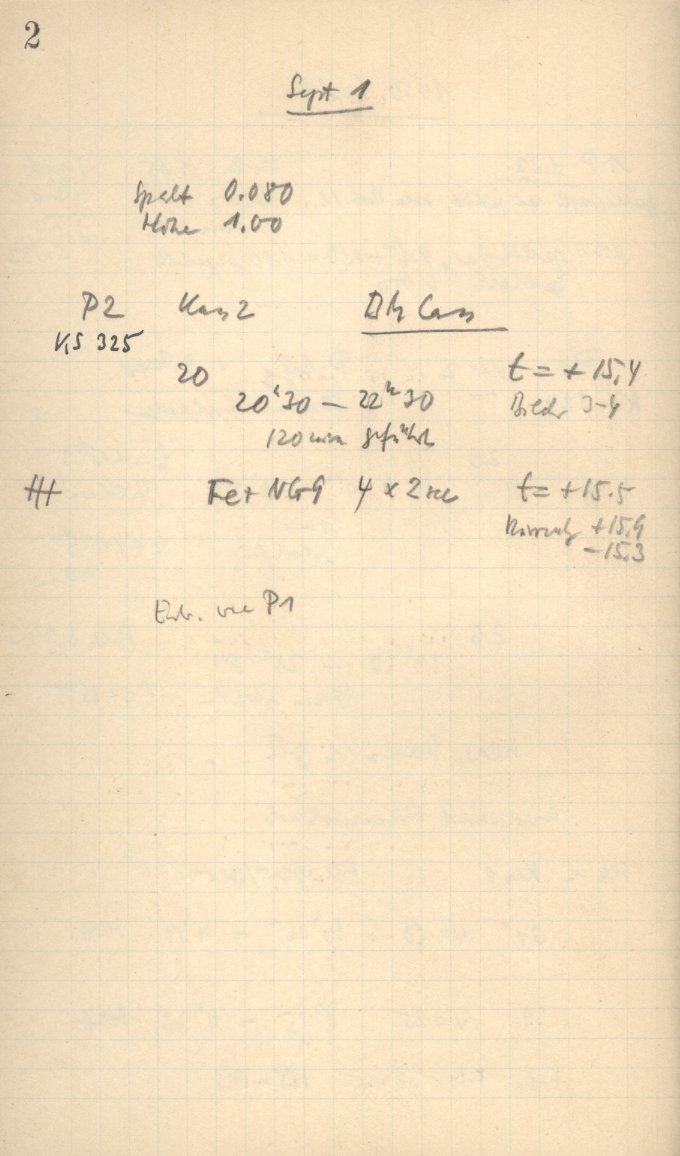 2
Sept 1
Spalt 0.080
Höhe 1.00
P2 Kass 2 Cass
VS 325
20 t = +15,4
20ʰ30 — 22ʰ30 Bilder 3-4
120 min geführt
Fe + NG9 4 x 2 sec t = +15.5
+15,9
-15,3
Entw. wie P1